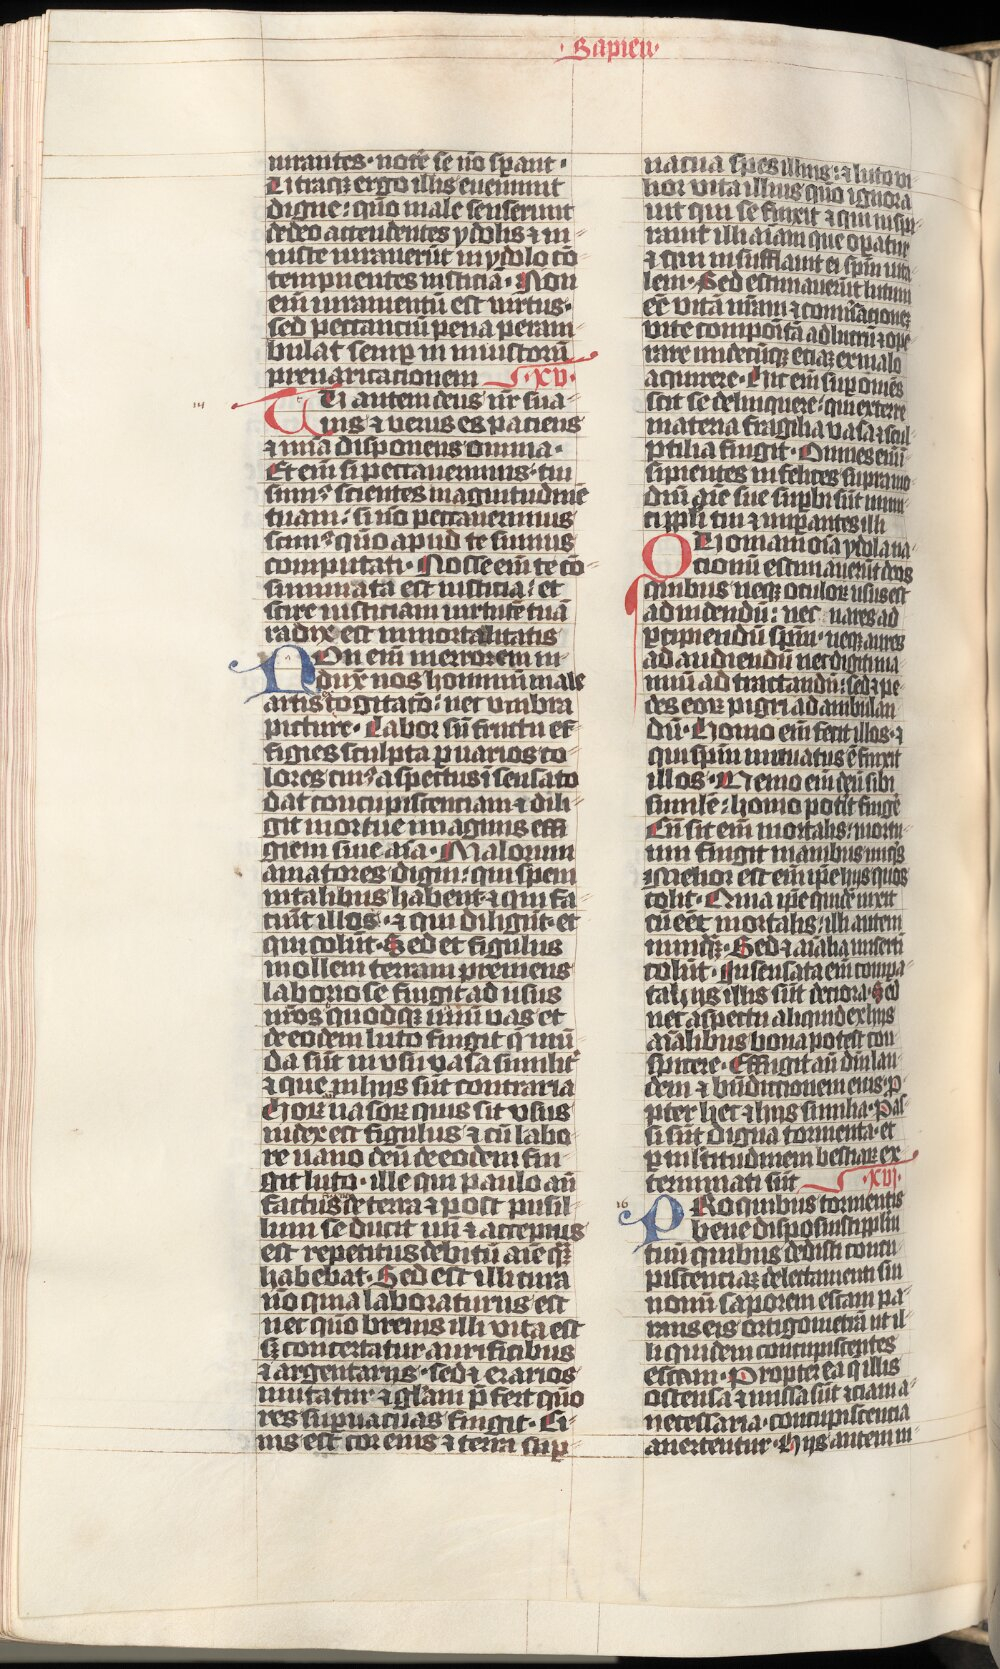 ·Sapien·
iurantes· nocẽ se nõ sꝑant·
Utraqꝫ ergo illis euenient
digne: quo male senserunt
de deo attendentes ydolis ⁊ in
iuste iurauerũt in ydolo cõ
tempnentes iusticiã· Non
enĩ iuramentũ est virtus·
sed peccanciũ pena peram
bulat semꝑ in iniustorũ
preuaricacionem ·xv·
14
TU autem deus nr̃ sua
uis ⁊ verus es paciens
⁊ mĩa disponens omnia·
Et enĩ si peccauerimus: tui
sum⁹ scientes magnitudinẽ
tuam: si nõ peccauerimus
scim⁹ quõ apud te sumus
computati· Nosse enĩ te cõ
summata est iusticia: et
scire iusticiam ⁊ virtutẽ tuã
radix est immortalitatis
NOn enĩ in errorem in
duxit nos hominũ male
artis cogitatõ: nec vmbra
picture· Labor sñ fructu ef
figies sculpta ꝑ uarios co
lores cui⁹ aspectus ĩsensato
dat concupiscenciam ⁊ dili
git mortue imaginis effi
giem sine aĩa· Malorum
amatores digni: qui spem
in talibus habent ⁊ qui fa
ciũt illos· ⁊ qui diligũt· et
qui colũt· Sed et figulus
mollem terram premens
laboriose fingit ad usus
nr̃os quodqꝫ unũ vas et
de eodem luto fingit q mũ
da sũt in vsũ vasa simlit̃
⁊ que in hijs sũt contraria
Horꝝ vasorꝝ quis sit vsus
iudex est figulus ⁊ cũ labo
re uano deũ de eodem fin
git luto· ille qui paulo añ
factus de terra ⁊ post pusil
lum se ducit vñ ⁊ acceptus
est repetitus debitũ aĩe qꝫ
habebat· Sed est illi cura
nõ quia laboraturus est
nec quõ breuis illi vita est
sꝫ concertatur aurificibus
⁊ argentarijs· sed ⁊ erarios
mutatur ⁊ glam p̃fert quõ
res suꝑuacuas fingit· Ci
nis est cor enis ⁊ terra suꝑ
uacua spes illius: ⁊ luto vi
lior vita illius quõ ignora
uit qui se finxit ⁊ qui inspi
rauit illi aĩam que oꝑatur
⁊ qui insufflauit ei spm̃ vita
lem· Sed estimauerũt lutum
eẽ vitã nr̃am ⁊ conuersacionez
vite compoĩtã ad lucrũ ⁊ ope
rtere undecũqꝫ etiã ex malo
acquirere· Hic enĩ suꝑ omẽs
scit se delinquere: qui ex terre
materia fragilia vasa ⁊ scul
ptilia fingit· Omnes enĩ
sipientes infelices supra mo
dũ aĩe sue suꝑbi sũt inimi
ci ppli tui ⁊ imꝑantes illi
QUoniam oĩa ydola na
cionũ estimauerũt deos
quibus neqꝫ oculorꝝ usus est
ad uidendũ: nec nares ad
ꝑcipiendũ spm̃· neqꝫ aures
ad audiendũ nec digiti ma
nuũ ad tractandũ: sed ⁊ pe
des eorꝝ pigri ad ambulan
dũ· Homo enĩ fecit illos· ⁊
qui spm̃ mutuatus ẽ finxit
illos· Nemo enĩ deũ sibi
similẽ: homo potit fingẽ
Cũ sit enĩ mortalis: mortu
um fingit manibus iniqis
Melior est enĩ ipe hijs quos
colit· Quia ipe quidẽ vixit
cũ eẽt mortalis: illi autem
numqꝫ· Sed ⁊ aĩalia miserri
colũt· Insensata enĩ compa
rata hijs illis sũt deriora· Sed
nec aspectu aliquid ex hijs
aĩalibus bona potest con
spicere· Effugit aũ diuĩ lau
dem ⁊ bñdictionem eius· P
pter hec ⁊ hijs similia· Pas
si sũt digna tormenta· et
ꝑ mltitudinem bestiarꝝ ex
terminati sũt ·xvj·
16
PRo quibus tormentis
bene disposuisti ppłm
tuũ quibus dedisti concu
piscenciarꝝ delectamenti sui
nouũ saporem escam pa
rans eis ortigometrã ut il
li quidem concupiscentes
escam· Propter ea q illis
ostensa ⁊ missa sũt eciam a
necessaria· concupiscencia
auerterentur· Hijs autem in